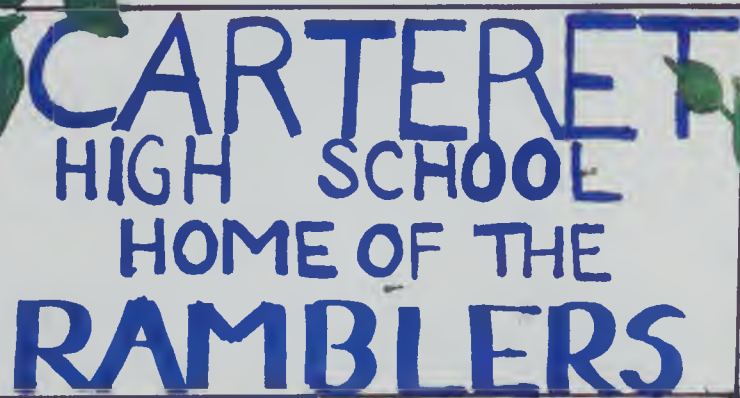 CARTERET
HIGH SCHOOL
HOME OF THE
RAMBLERS